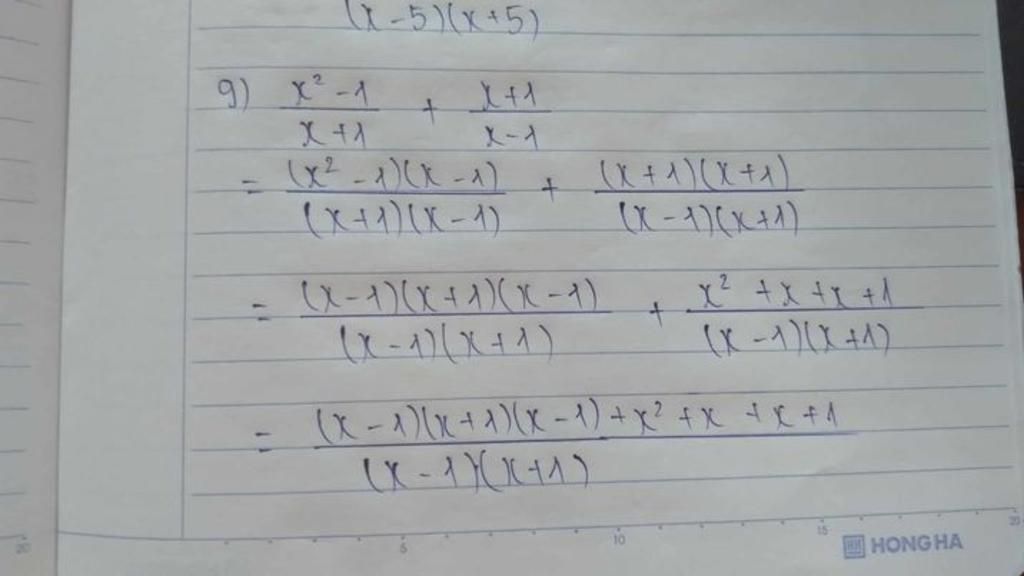 (x-5)(x+5)
g) \frac{x² - 1}{x+1} + \frac{x+1}{x-1}
= \frac{(x² - 1)(x - 1)}{(x+1)(x-1)} + \frac{(x+1)(x+1)}{(x-1)(x+1)}
= \frac{(x-1)(x+1)(x-1)}{(x-1)(x+1)} + \frac{x² + x + x + 1}{(x-1)(x+1)}
= \frac{(x-1)(x+1)(x-1) + x² + x + x + 1}{(x-1)(x+1)}
20 5 10 15 20
HH HONG HA